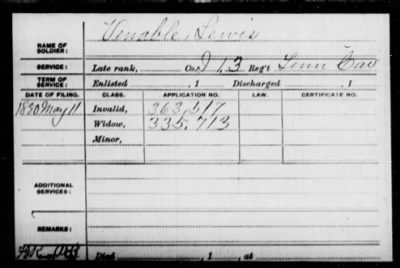 NAME OF SOLDIER: Venable, Lewis
SERVICE: Late rank, Co. I, 13 Reg't Tenn Cav
TERM OF SERVICE: Enlisted , 1 Discharged , 1
DATE OF FILING. CLASS. APPLICATION NO. LAW. CERTIFICATE NO.
1880 May 11 Invalid, 363,517
Widow, 335,713
Minor,
ADDITIONAL SERVICES:
REMARKS:
Died , 1 , at